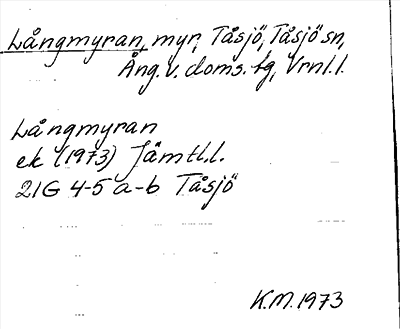 Långmyran, myr, Tåsjö, Tåsjö sn,
Ång. v. doms. tg, Vrnl. l.
Långmyran
ek (1973) Jämtl. l.
21G 4-5 a-b Tåsjö
K.M. 1973